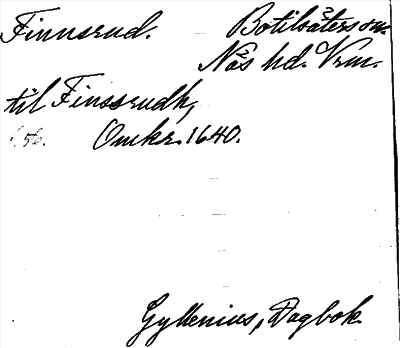 Finnsrud. Botilsäters sn.
Näs hd. Vrm.
til Finssrudh,
s. 56. Omkr. 1640.
Gyllenius, Dagbok.